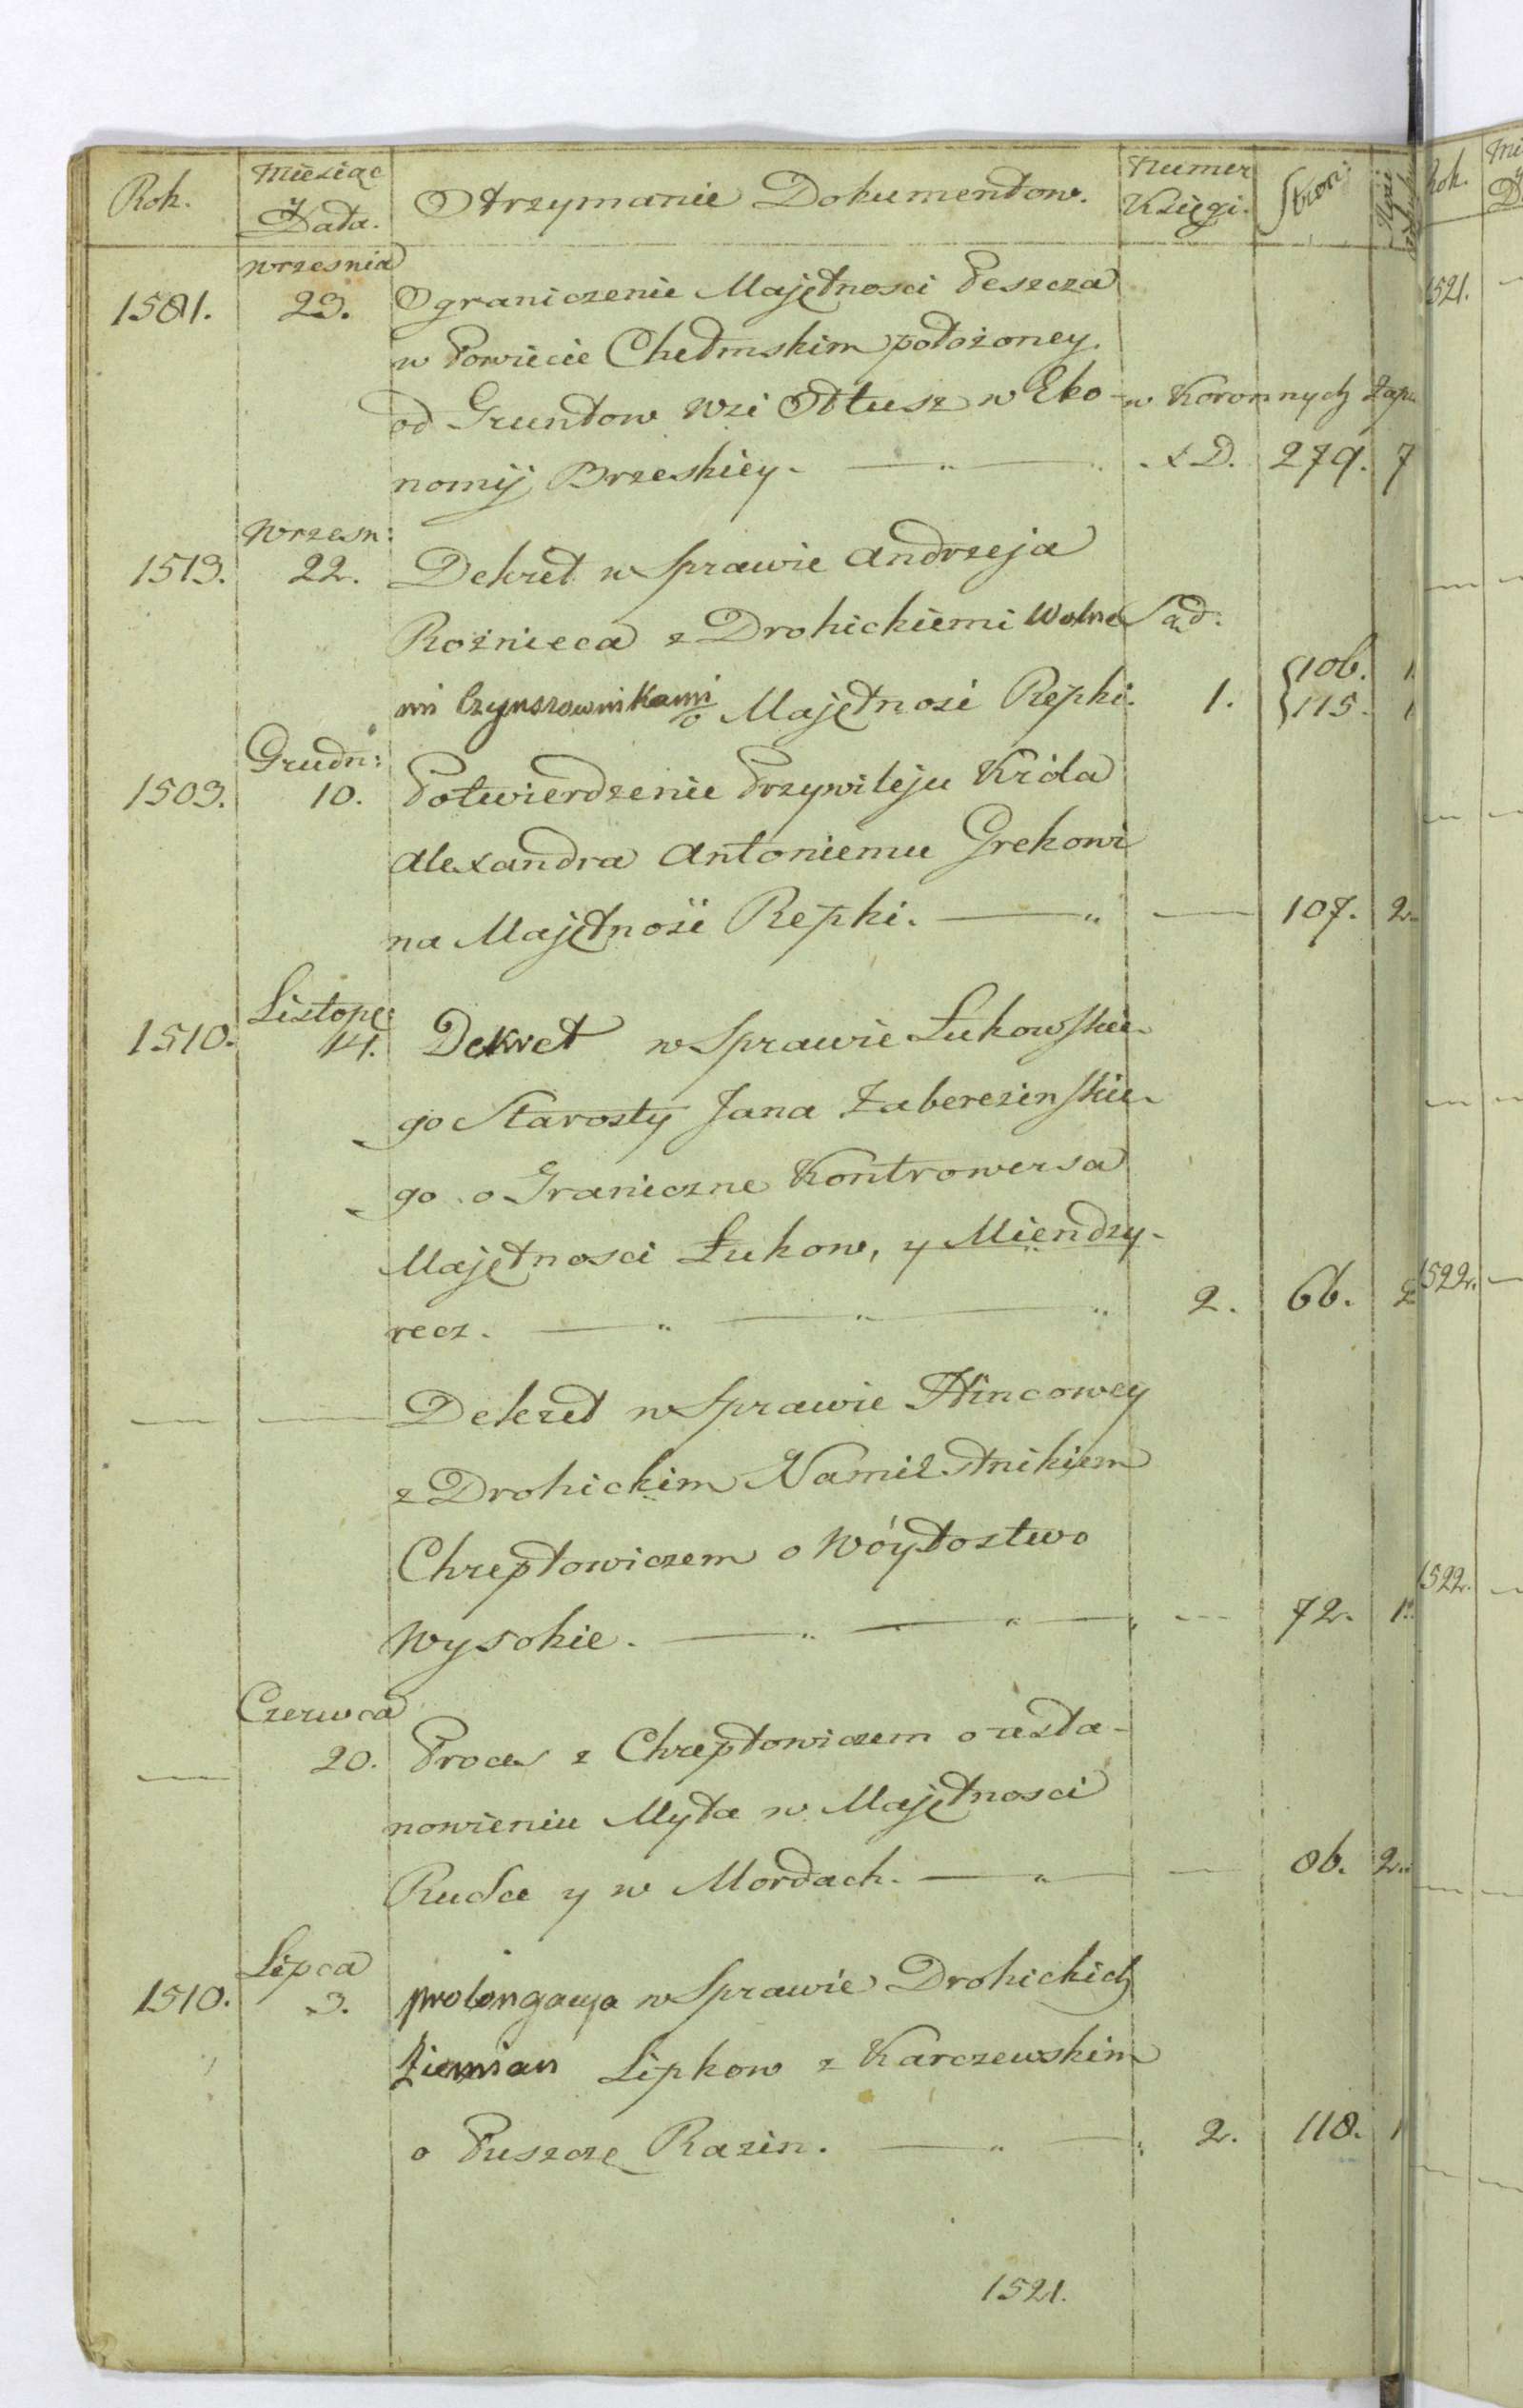 Rok. Miesiąc y Data. Otrzymanie Dokumentow. Numer Księgi. Stron:
Wrzesnia
1581. 23. Ograniczenie Majętnosci Peszcza
w Powiecie Chełmskim położoney
od Gruntow Wsi Ołtusz w Eko- w Koronnych Zapi
nomij Brzeskiey. 279. 7
Wrzesn:
1513. 22. Dekret w Sprawie Andrzeja
Rożnieca z Drohickiemi Wolne Sąd.
mi Czynszownikami o Majętnosć Repki. 1. 106. 1
115. 1
Grudn:
1509. 10. Potwierdzenie Przywileju Króla
Alexandra Antoniemu Grekowi
na Majętność Repki. 107. 2.
Listop:
1510. 14. Dekret w Sprawie Łukowskie-
go Starosty Jana Zaberezinskie-
go o Graniczne Kontrowersa
Majętnosci Łukow, y Miendzy-
recz. 2. 66. 2
Dekret w Sprawie Hincowey
z Drohickim Namiestnikiem
Chreptowiczem o Wóytostwo
Wysokie. 72. 1.
Czerwca
20. Proces z Chreptowiczem o usta-
nowieniu Myta w Majętnosci
Rusce y w Mordach. 86. 2.
Lipca
1510. 3. prolongacya w Sprawie Drohickich
Ziemian Lipkow z Karczewskim
o Puszczę Razin. 2. 118. 1
1521.
Rok.
1521.
1522.
1522.